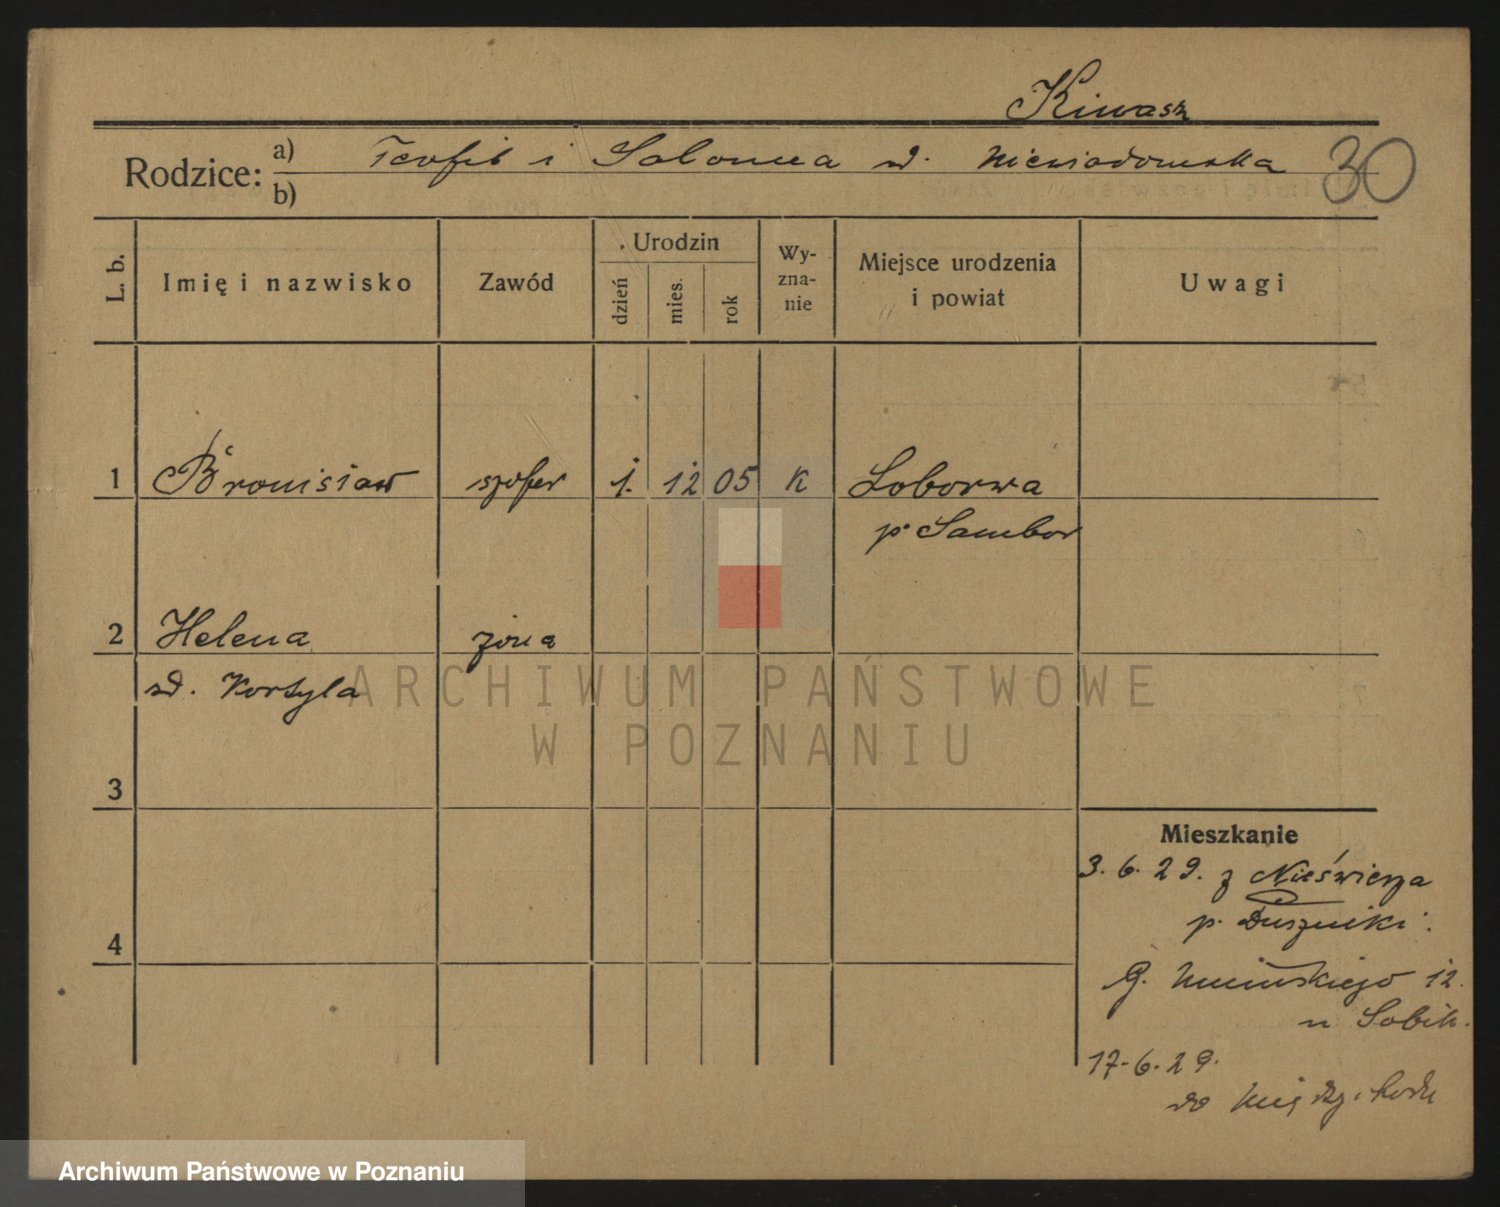 Kiwasz
Rodzice: a) Teofil i Salomea zd. Niewiadomska 30
b)
L. b. Imię i nazwisko Zawód Urodzin dzień mies. rok Wyznanie Miejsce urodzenia i powiat Uwagi
1 Bronisław szofer 1. 12 05 K Loborwa
p. Sambor
2 Helena żona
zd. Kortyla
ARCHIWUM PAŃSTWOWE
W POZNANIU
3
Mieszkanie
3. 6. 29. z Nieświerza
p. Duszniki.
4
G. 12.
u Sobik.
17. 6. 29.
do Międzychodu
Archiwum Państwowe w Poznaniu